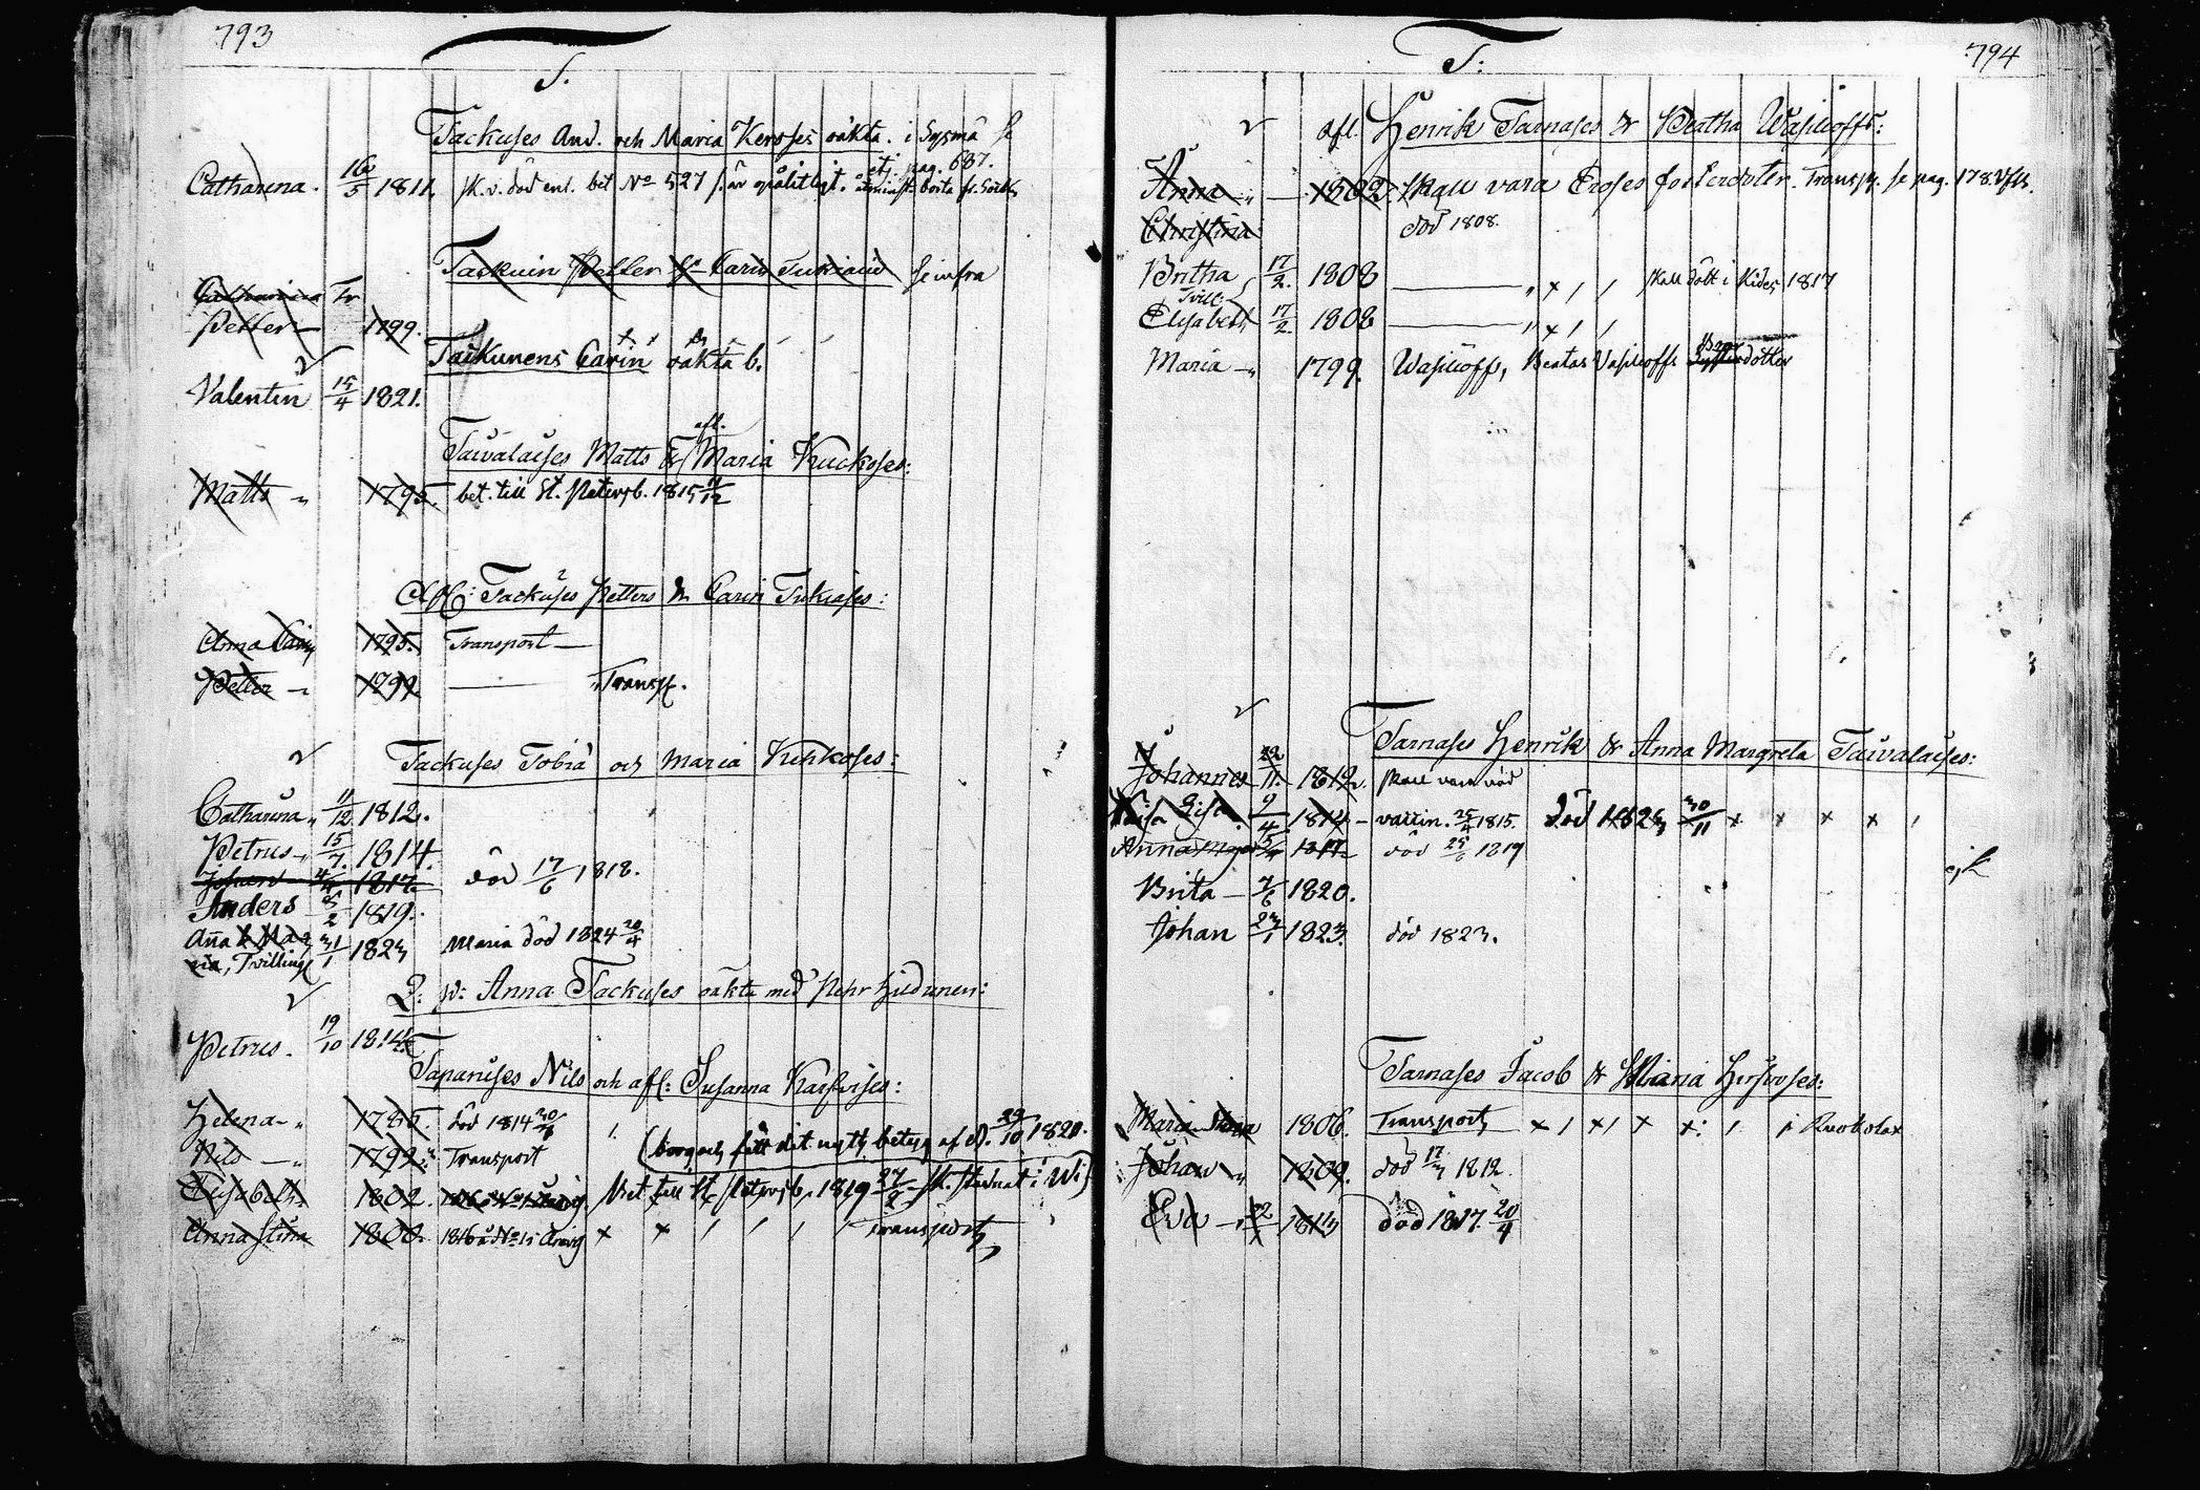 793
T.
Tackuses And. och Maria Keroses oäkta. i Sysmä se
ej. pag. 687.
Catharina. 16/5 1811. sk. v. död enl. bet No 527 s. är opålitligt. åtminst. borta fr. Sockn
Taskuin Petter & Carin Tukiain se infra
Catharina
Petter — 1799.
Taskunens Carin oäkta b.
Valentin 15/4 1821.
afl.
Taivalaises Matts & Maria Kuckoses:
Matts " 1795. bet. till St. Petersb. 1815 11/12
Afl: Tackuses Petters & Carin Tukiases:
Anna Carin 1795. Transport —
Petter — 1799 — " Transp.
Tackuses Tobia och Maria Kuhkoses:
Catharina " 11/12. 1812.
Petrus " 15/7. 1814.
Johan — 4/4 1817. död 17/6 1818.
Anders 5/2 1819.
Aña & Ma-
ria, Tvilling 31/1 1823 Maria död 1824 20/4
Q: p: Anna Tackuses oäkta med Pehr Hiidunen:
Petrus. 19/10 1814.
Tapanises Nils och afl: Susanna Karhuises:
Helena " 1785. död 1814 20/
Nils — " 1792. Transport (borg och fått dit nytt betyg af d. 29/10 1820.
Elisabeth 1802. Bet till St. Petersb. 1819 27/ sk. stadnat i Wi
Anna Stina 1808. 1816 a No 15 × × / / / / Transport
794
T:
afl. Henrik Tarnases & Beatha Wasilioffs:
Anna " — 1802. skall vara Eroses fosterdoter. Transp. se pag. 178.
Christina död 1808.
Britha 17/2. 1808 — " × / / skall dött i Kides 1817
Tvill.
Elisabeth 17/2. 1808 — " × / /
Maria " 1799. Wasilioffs, Beatas Wasilioffs dotter
Tarnases Henrik & Anna Margreta Taivalaises:
Johannes 22/11. 1812. skall vara död
Lisa 9/4 1814 — vaccin. 25/4 1815. död 1823 30/11 × × × × /
Anna Mar 1817 död 25/6 1819
ejk
Brita — 7/6 1820.
Johan 23/1 1823. död 1823.
Tarnases Jacob & Maria Hirfvoses:
Maria 1806. Transport × / × / × ×: / i Ruokolax
Johan " 1809. död 17/3 1812.
Eva — 22/ 1813 död 1817. 20/4